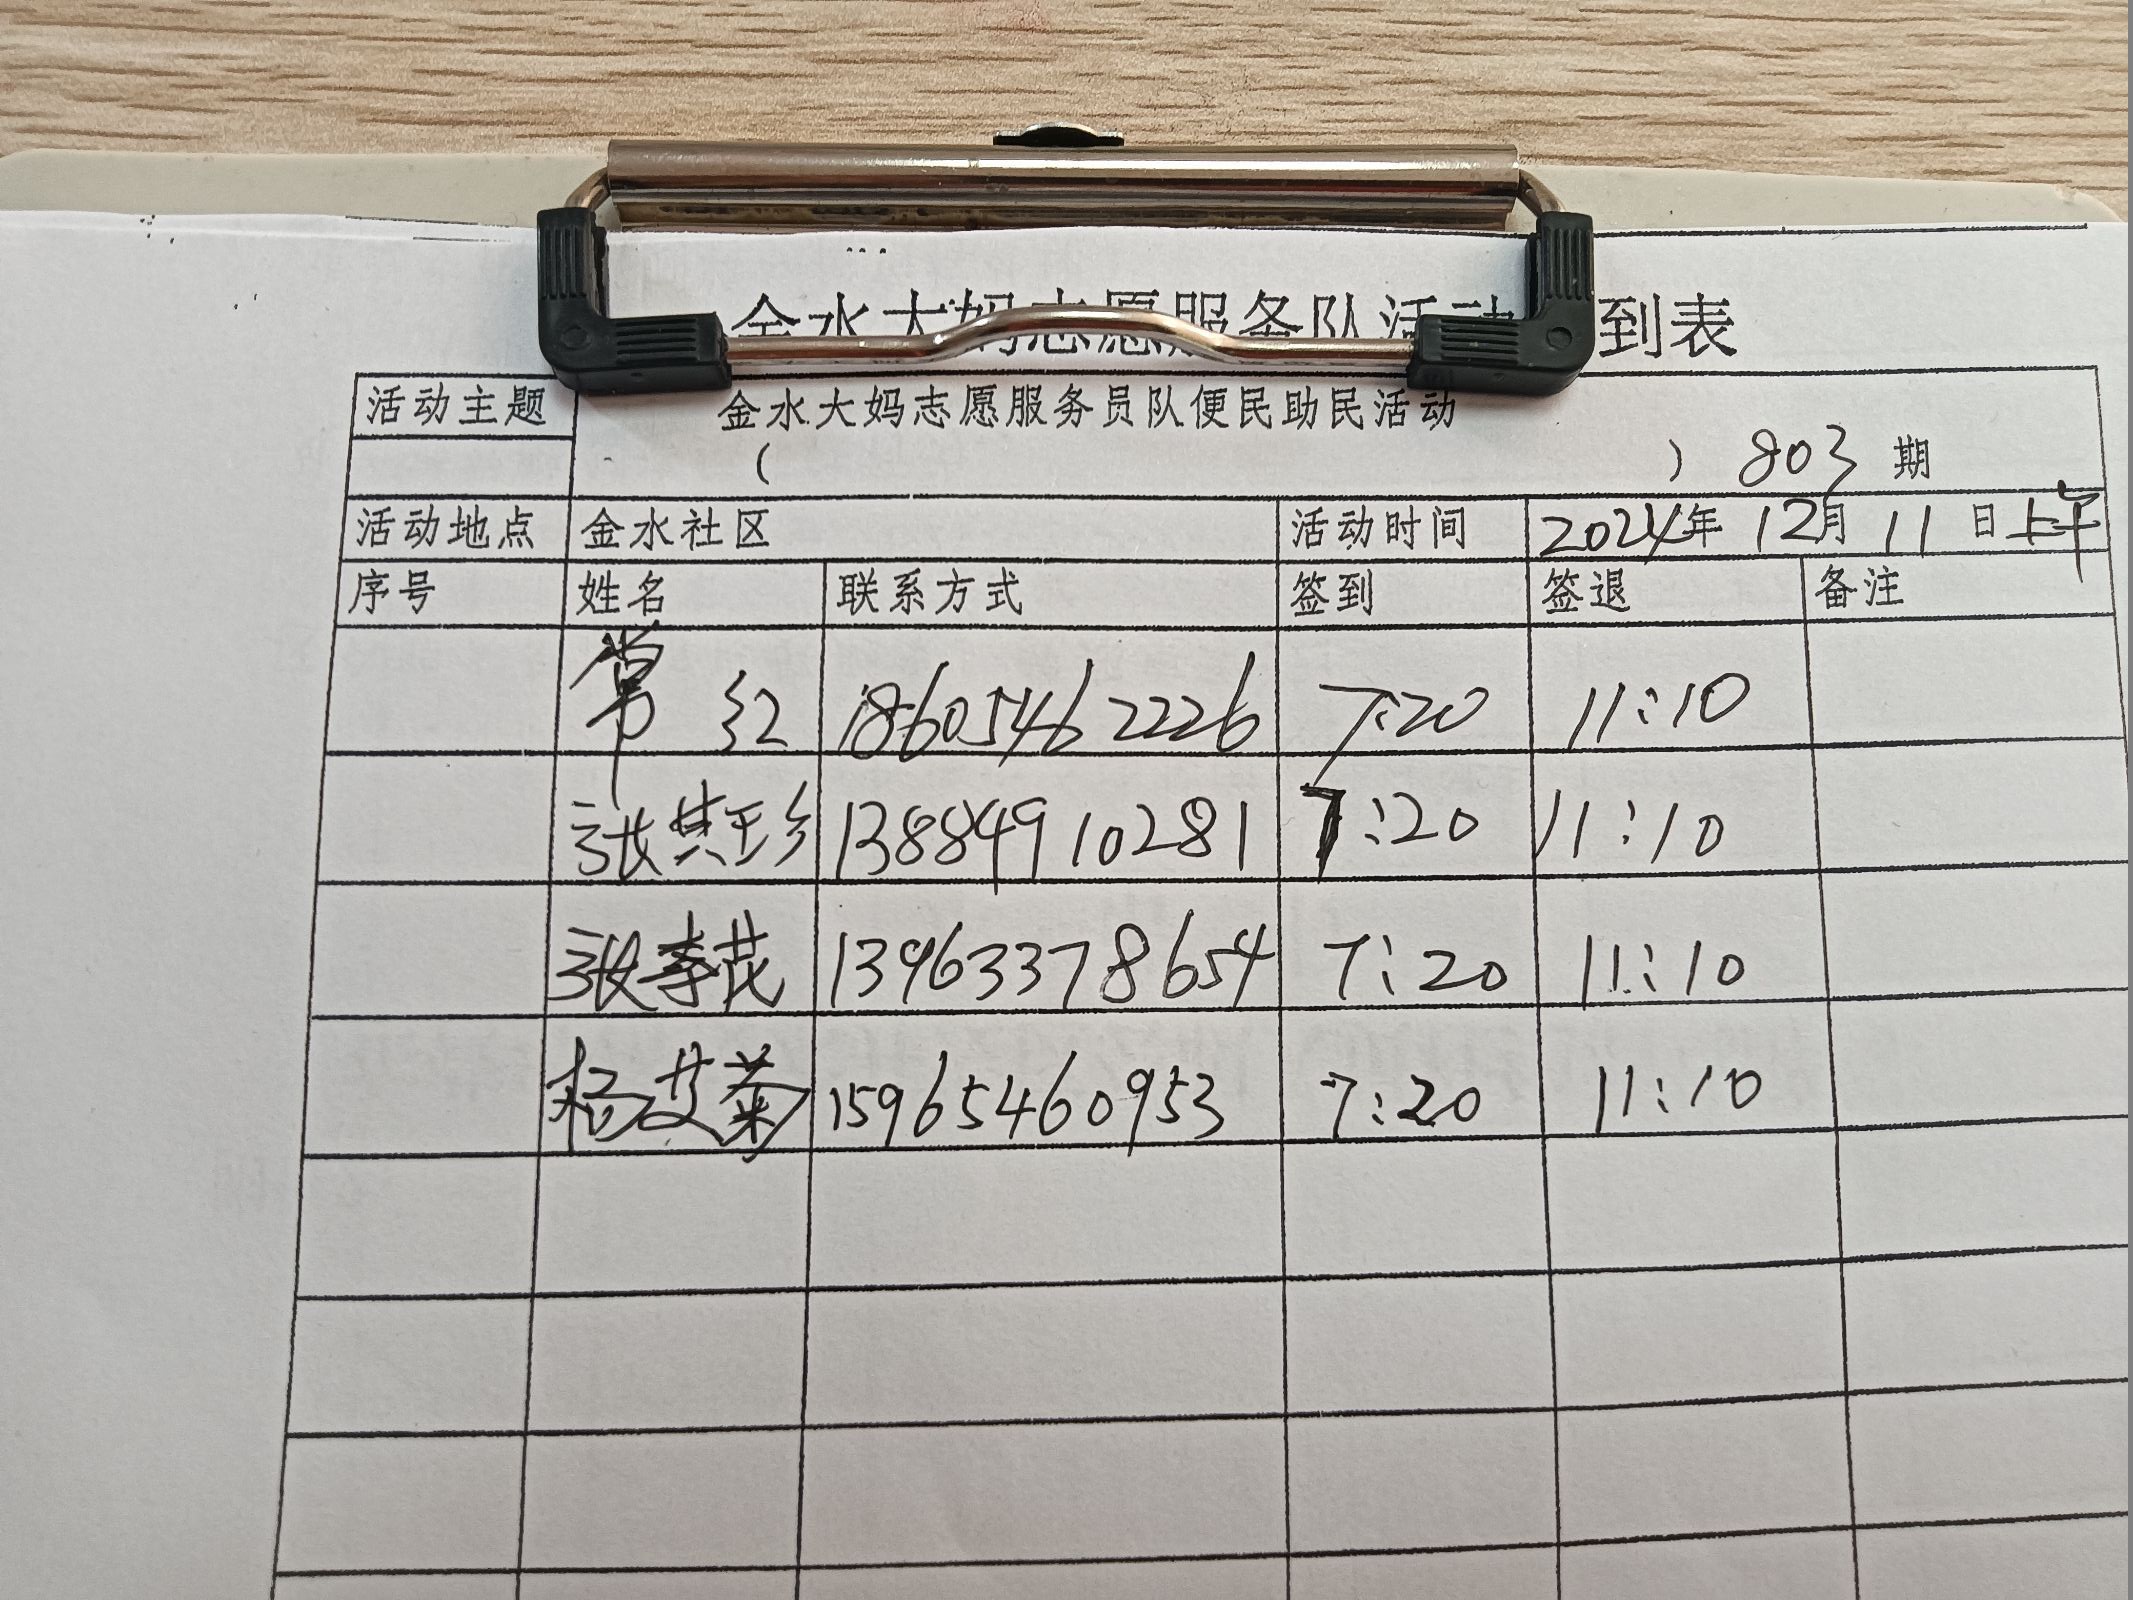 金水大妈志愿服务队活动 到表
活动主题 金水大妈志愿服务员队便民助民活动
( ) 803 期
活动地点 金水社区 活动时间 2024年 12月 11 日 上午
序号 姓名 联系方式 签到 签退 备注
常 红 18605462226 7:20 11:10
张其珍 13884910281 7:20 11:10
张 花 13963378654 7:20 11:10
杨艾菊 15965460953 7:20 11:10